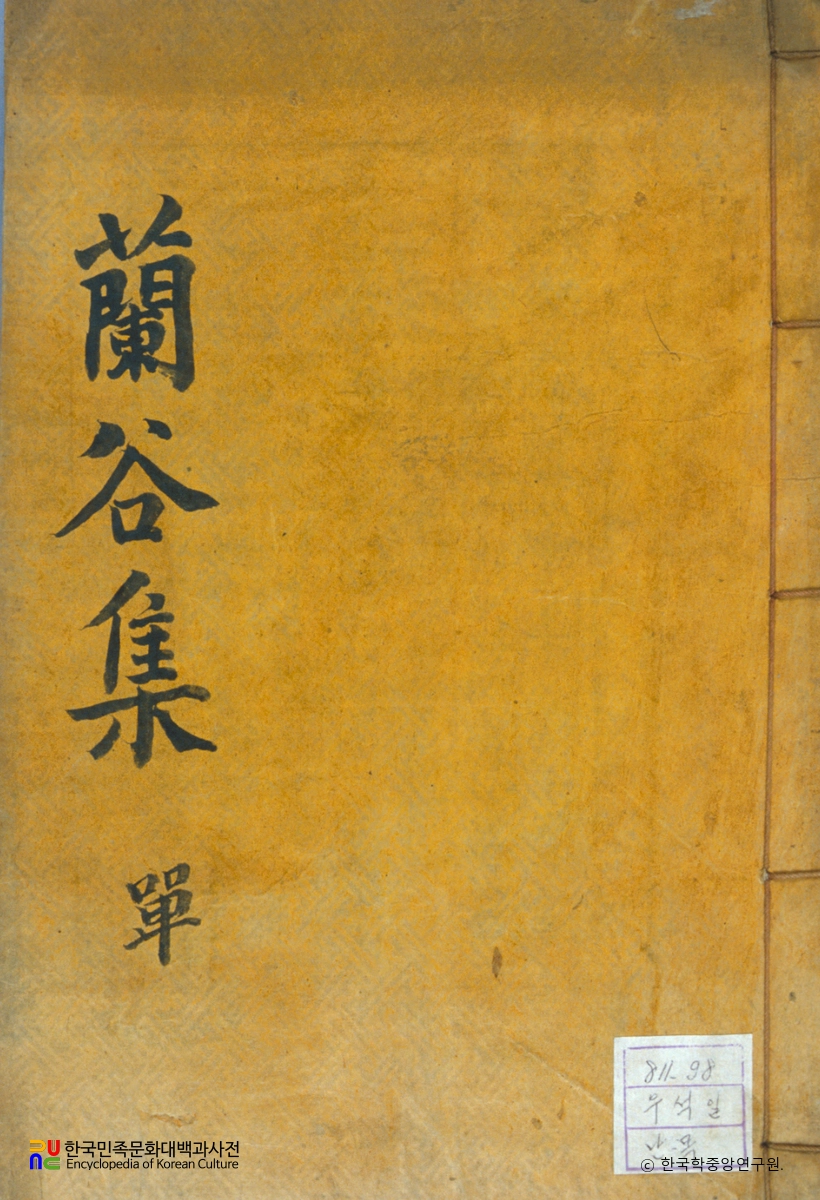 蘭谷集
單
811-98
우석일
한국민족문화대백과사전
Encyclopedia of Korean Culture
© 한국학중앙연구원.